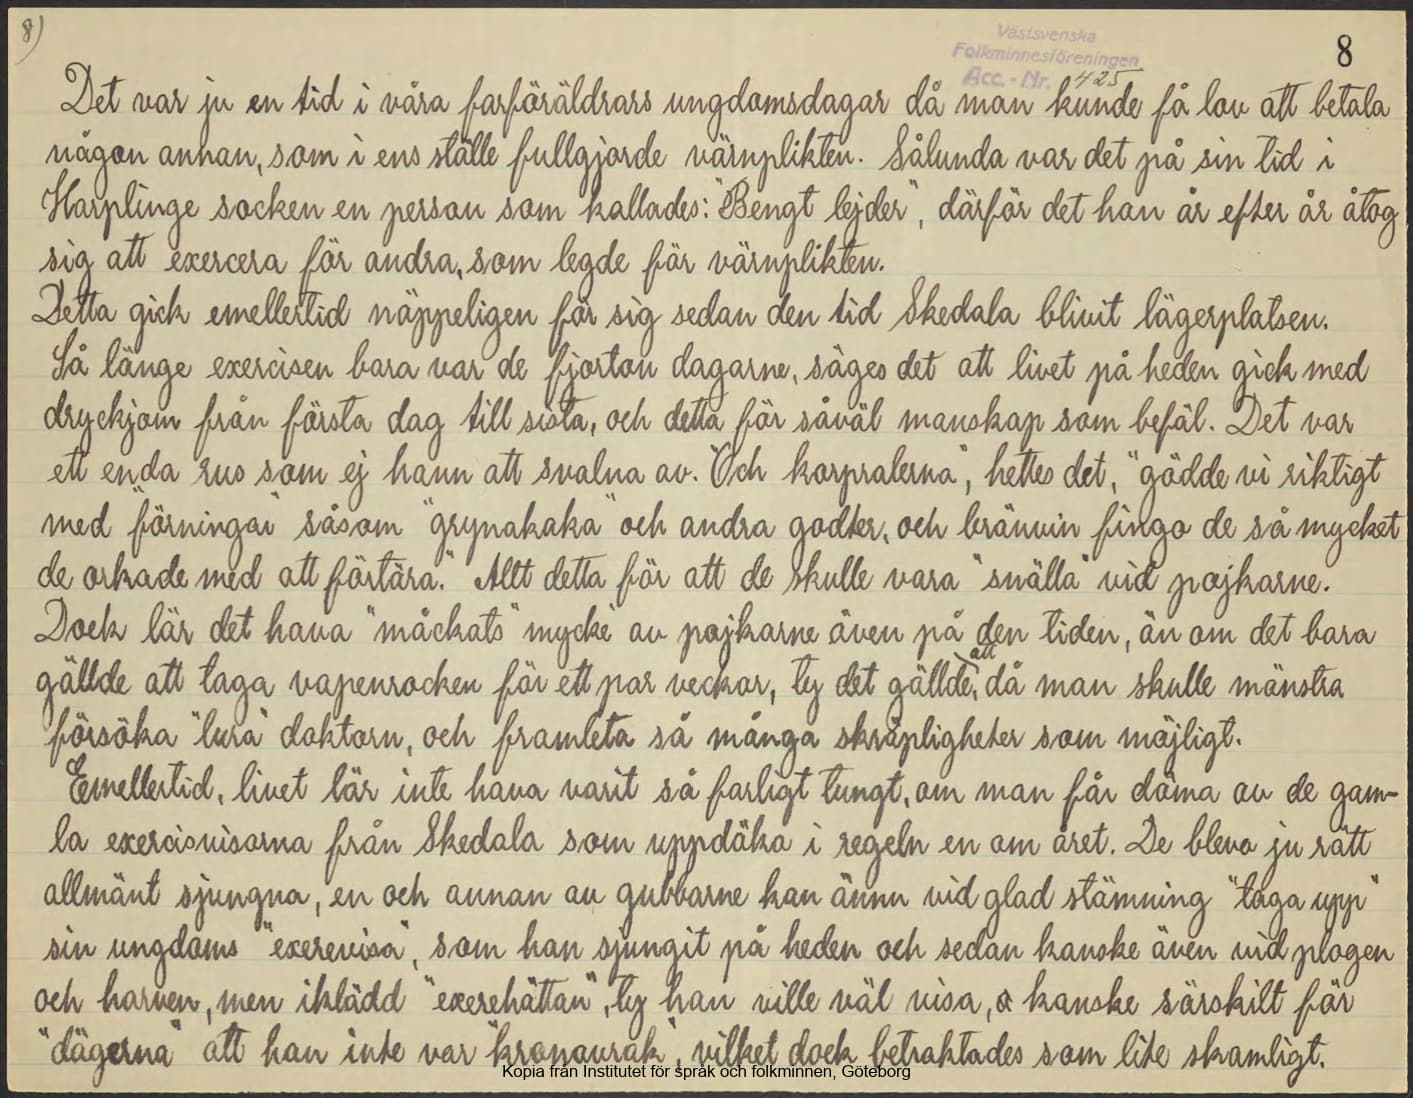 8)
Västsvenska
Folkminnesföreningen
Acc.-Nr. 425
8
Det var ju en tid i våra farföräldrars ungdomsdagar då man kunde få lov att betala
någon annan, som i ens ställe fullgjorde värnplikten. Sålunda var det på sin tid i
Harplinge socken en person som kallades: "Bengt lejder", därför det han år efter år åtog
sig att exercera för andra, som legde för värnplikten.
Detta gick emellertid näppeligen för sig sedan den tid Skedala blivit lägerplatsen.
Så länge exercisen bara var de fjorton dagarne, säges det att livet på heden gick med
dryckjom från första dag till sista, och detta för såväl manskap som befäl. Det var
ett enda rus som ej hann att svalna av. "Och korpralerna", hettes det, "gödde vi riktigt
med "förningar" såsom "grynakaka" och andra godter, och bränvin fingo de så mycket
de orkade med att förtära." Allt detta för att de skulle vara "snälla" vid pojkarne.
Dock lär det hava "måckats" mycke av pojkarne även på den tiden, än om det bara
gällde att taga vapenrocken för ett par veckor, ty det gällde att då man skulle mönstra
försöka "lura" doktorn, och framleta så många skröpligheter som möjligt.
Emellertid, livet lär inte hava varit så farligt tungt, om man får döma av de gam-
la exercisvisorna från Skedala som uppdöka i regeln en om året. De blevo ju rätt
allmänt sjungna, en och annan av gubbarne kan ännu vid glad stämning "taga upp"
sin ungdoms "exerevisa", som han sjungit på heden och sedan kanske även vid plogen
och harven, men iklädd "exerehättan", ty han ville väl visa, o kanske särskilt för
"dägerna" att han inte var "kronovrak", vilket dock betraktades som lite skamligt.
Kopia från Institutet för språk och folkminnen, Göteborg